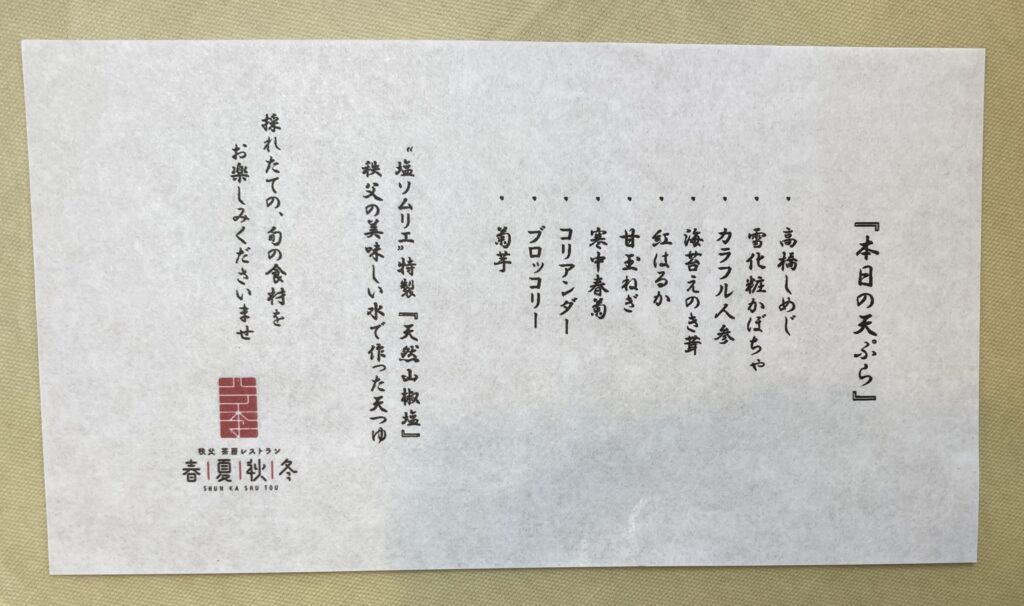 『本日の天ぷら』
・高橋しめじ
・雪化粧かぼちゃ
・カラフル人参
・海苔えのき茸
・紅はるか
・甘玉ねぎ
・寒中春菊
・コリアンダー
・ブロッコリー
・菊芋
“塩ソムリエ”特製『天然山椒塩』
秩父の美味しい水で作った天つゆ
採れたての、旬の食材を
お楽しみくださいませ
秩父 茶寮レストラン
春|夏|秋|冬
SHUN KA SHU TOU